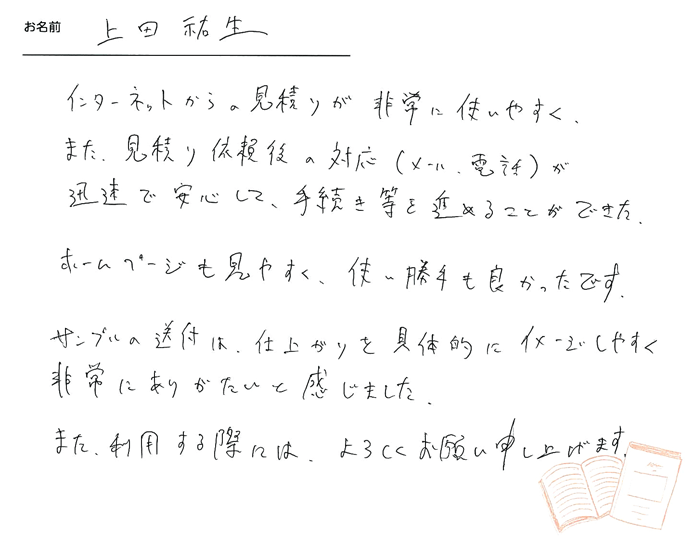 お名前 上田 祐生
インターネットからの見積りが 非常に使いやすく、
また、見積り依頼後の対応(メール、電話)が
迅速で安心して、手続き等を進めることができた。
ホームページも見やすく、使い勝手も良かったです。
サンプルの送付は、仕上がりを具体的にイメージしやすく
非常にありがたいと感じました。
また、利用する際には、よろしくお願い申し上げます。